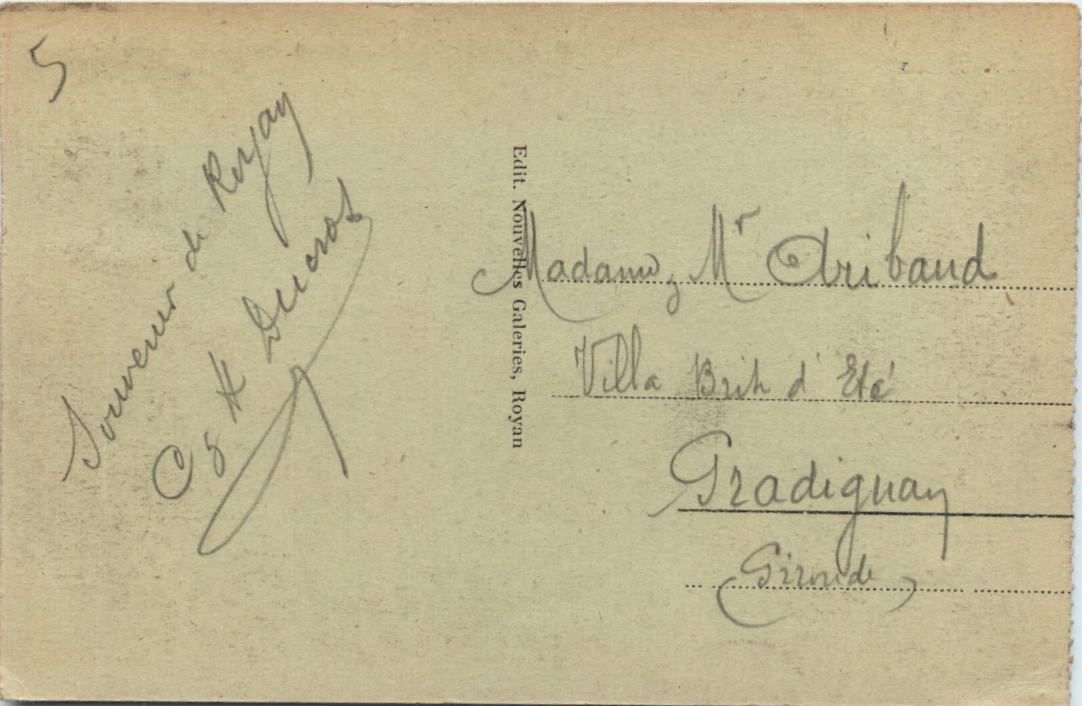 5
Souvenir de Royan
C & H Ducros
Edit. Nouvelles Galeries, Royan
Madame, Mr Aribaud
Villa Brih d'Eté
Gradignan
(Gironde)